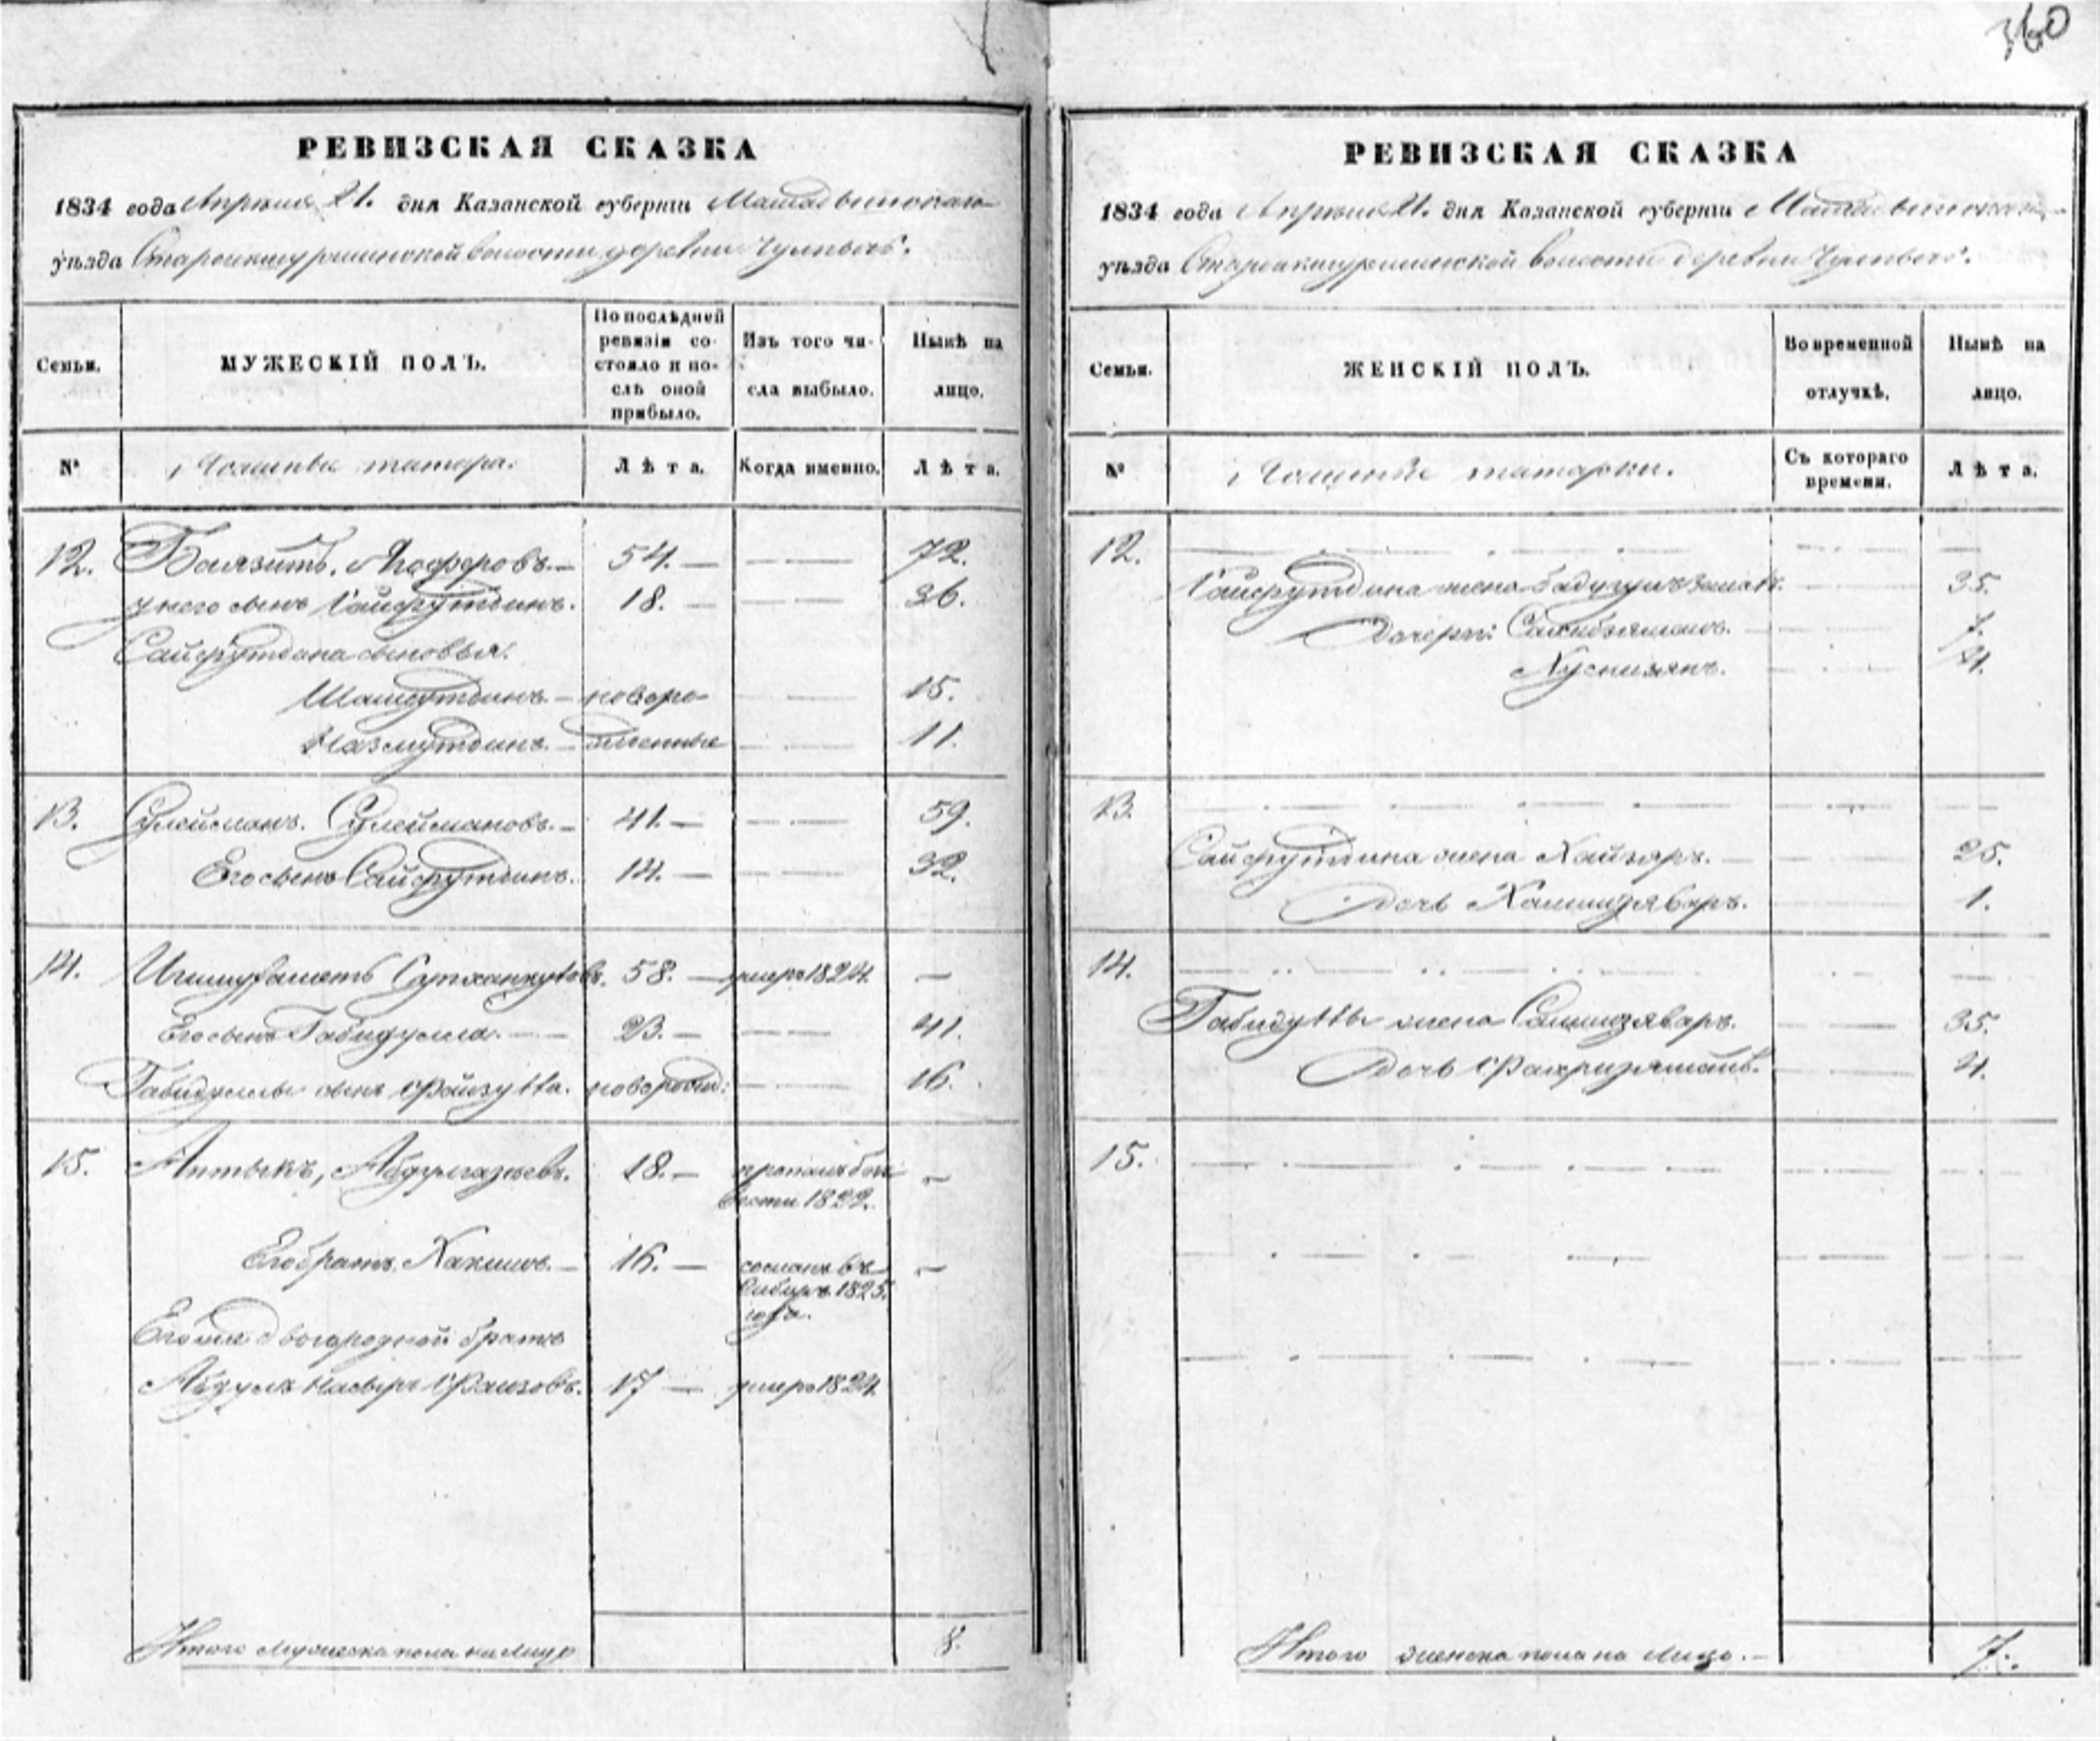 360
РЕВИЗСКАЯ СКАЗКА
1834 года Апреля 21. дня Казанской губернии Мамадышскаго
уѣзда Старокишуринской волости деревни Чулпычь.
Семьи.
МУЖЕСКІЙ ПОЛЪ.
По послѣдней ревизіи состояло и послѣ оной прибыло.
Изъ того числа выбыло.
Нынѣ на лицо.
№
татара.
Лѣта.
Когда именно.
Лѣта.
12. Баязитъ. 54. — 72.
у него сынъ Сайфутдинъ. 18. — 36.
Сайфутдина сыновья:
Шамсутдинъ. — новоро- 15.
Назмутдинъ. — жденные 11.
13. Сулейманъ. Сулеймановъ. — 41. — 59.
Его сынъ Сайфутдинъ. 14. — 32.
14. 58. — умеръ 1824. —
Его сынъ Габидулла. — 23. — 41.
Габидуллы сынъ Файзулла. новорожд: 16.
15. Аптыкъ, Абдулгазыевъ. 18. — пропалъ безъ —
вести 1822.
Его братъ Хакимъ. — 16. — сосланъ въ —
Сибирь 1825.
года.
Его же двоюродной братъ
Абдулъ Насыръ Фаизовъ. 17 — умеръ 1824.
Итого мужеска пола на лицо 8.
РЕВИЗСКАЯ СКАЗКА
1834 года Апреля 21. дня Казанской губернии Мамадышскаго
уѣзда Старокишуринской волости деревни Чулпычь.
Семьи.
ЖЕНСКІЙ ПОЛЪ.
Во временной отлучкѣ.
Нынѣ на лицо.
№
татарки.
Съ котораго времени.
Лѣта.
12.
Сайфутдина жена 35.
Дочери: Сахибзямалъ. 7.
Хуснизянъ. 4.
13.
Сайфутдина жена Хайзяръ. — 25.
Дочь Хамизяваръ. 1.
14.
Габидуллы жена Самизяваръ. 35.
Дочь Фахризямалъ. 4.
15.
Итого женска пола на лицо. — 7.